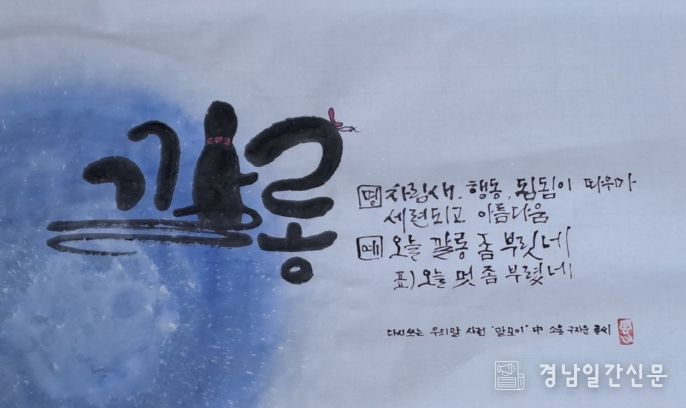 깔롱
명 차림새, 행동, 됨됨이 따위가
세련되고 아름다움
예 오늘 깔롱 좀 부릿네
표) 오늘 멋 좀 부렸네
다시쓰는 우리말 사전 '말모이' 中
경남일간신문